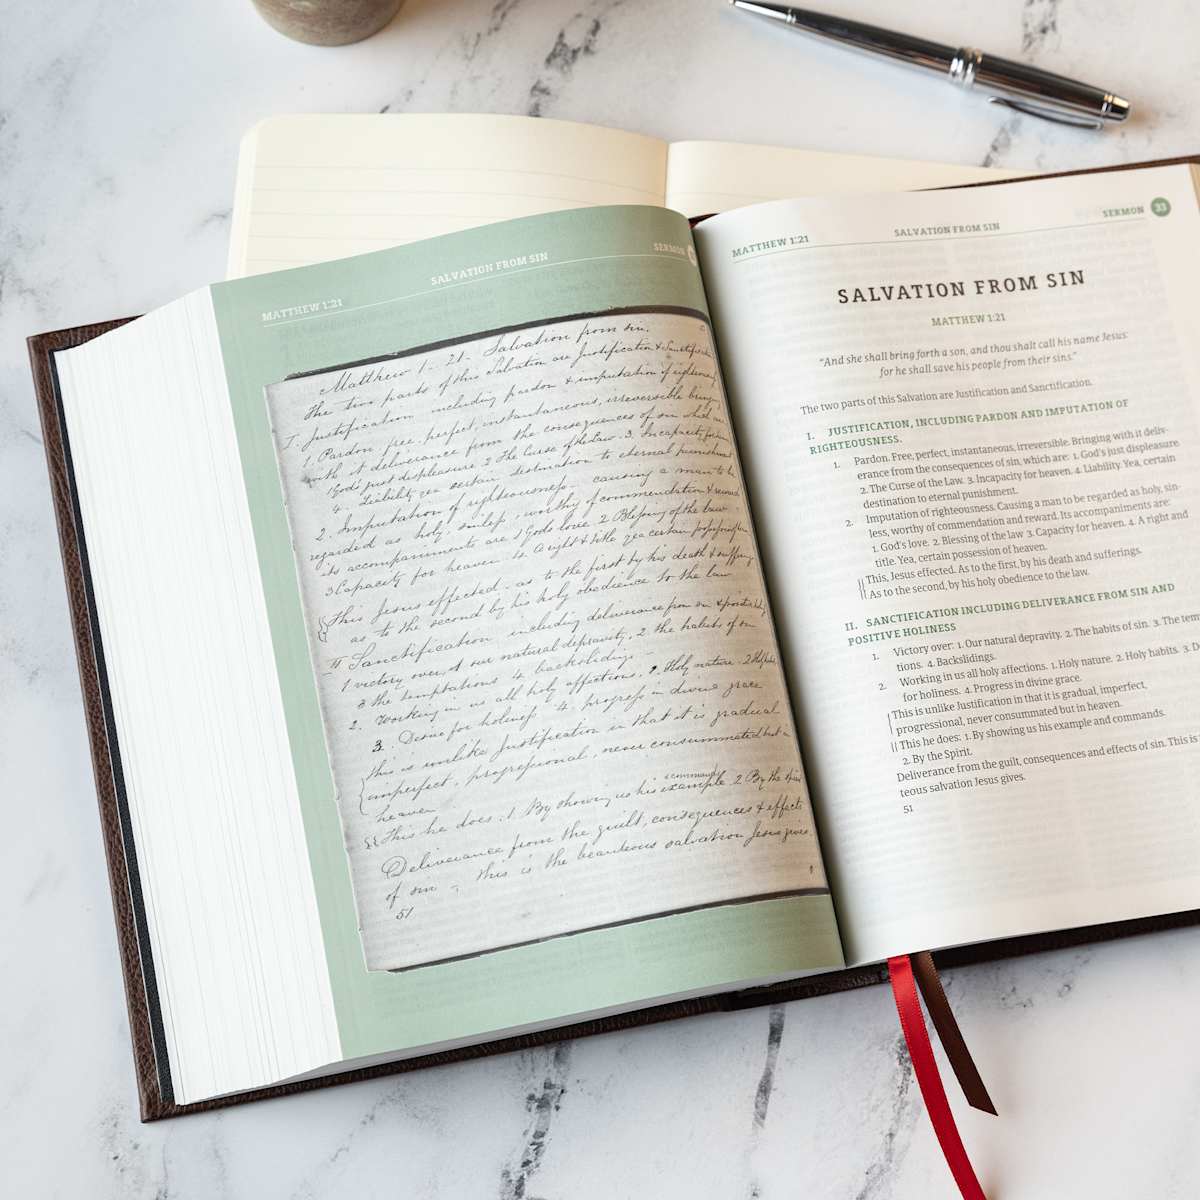 MATTHEW 1:21 SALVATION FROM SIN SERMON
Matthew 1. 21- Salvation from sin.
The two parts of this Salvation are Justification & Sanctification
I. Justification including pardon & imputation of righteousness
1 Pardon. free, perfect, instantaneous, irreversible bringing
with it deliverance from the consequences of sin which are
1 God's just displeasure 2 The Curse of the Law. 3. Incapacity for heaven
4. Liability yea certain destination to eternal punishment
2. Imputation of righteousness. causing a man to be
regarded as holy, sinless, worthy of commendation & reward
its accompaniments are 1 Gods love. 2 Blessing of the law
3 Capacity for heaven 4. A right & title yea certain
This Jesus effected. as to the first by his death & sufferings
as to the second by his holy obedience to the law
II Sanctification including deliverance from sin &
1 victory over, 1 our natural depravity, 2. the habits of sin
3 the temptations 4 backslidings-
2. Working in us all holy affections, 1. Holy nature. 2
3. Desire for holiness 4. progress in divine grace
this is unlike Justification in that it is gradual
imperfect, progressional, never consummated but in
heaven
commands
This he does. 1. By showing us his example. 2 By the Spirit
Deliverance from the guilt, consequences & effects
of sin - this is the beauteous salvation Jesus gives.
51
MATTHEW 1:21 SALVATION FROM SIN SERMON 33
SALVATION FROM SIN
MATTHEW 1:21
“And she shall bring forth a son, and thou shalt call his name Jesus:
for he shall save his people from their sins.”
The two parts of this Salvation are Justification and Sanctification.
I. JUSTIFICATION, INCLUDING PARDON AND IMPUTATION OF
RIGHTEOUSNESS.
1. Pardon. Free, perfect, instantaneous, irreversible. Bringing with it deliv-
erance from the consequences of sin, which are: 1. God's just displeasure.
2. The Curse of the Law. 3. Incapacity for heaven. 4. Liability. Yea, certain
destination to eternal punishment.
2. Imputation of righteousness. Causing a man to be regarded as holy, sin-
less, worthy of commendation and reward. Its accompaniments are:
1. God's love. 2. Blessing of the law 3. Capacity for heaven. 4. A right and
title. Yea, certain possession of heaven.
This, Jesus effected. As to the first, by his death and sufferings.
As to the second, by his holy obedience to the law.
II. SANCTIFICATION INCLUDING DELIVERANCE FROM SIN AND
POSITIVE HOLINESS
1. Victory over: 1. Our natural depravity. 2. The habits of sin. 3. The tem
tions. 4. Backslidings.
2. Working in us all holy affections. 1. Holy nature. 2. Holy habits. 3. D
for holiness. 4. Progress in divine grace.
This is unlike Justification in that it is gradual, imperfect,
progressional, never consummated but in heaven.
This he does: 1. By showing us his example and commands.
2. By the Spirit.
Deliverance from the guilt, consequences and effects of sin. This is
teous salvation Jesus gives.
51